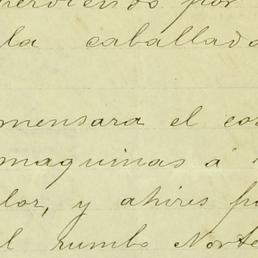 por
la caballada
mensara el
maquinas á
lor, y ahires
el rumbo Norte